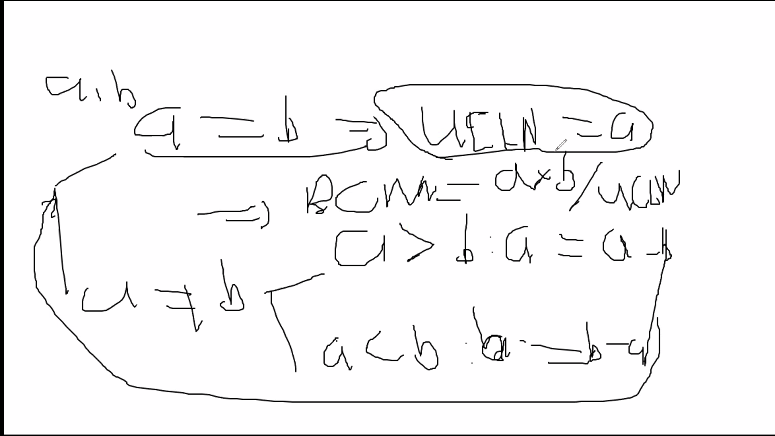 a,b
a = b ⇒ UCLN = a
⇒ BCNN = a×b/UCLN
a > b : a = a - b
a ≠ b
a < b : b = b - a